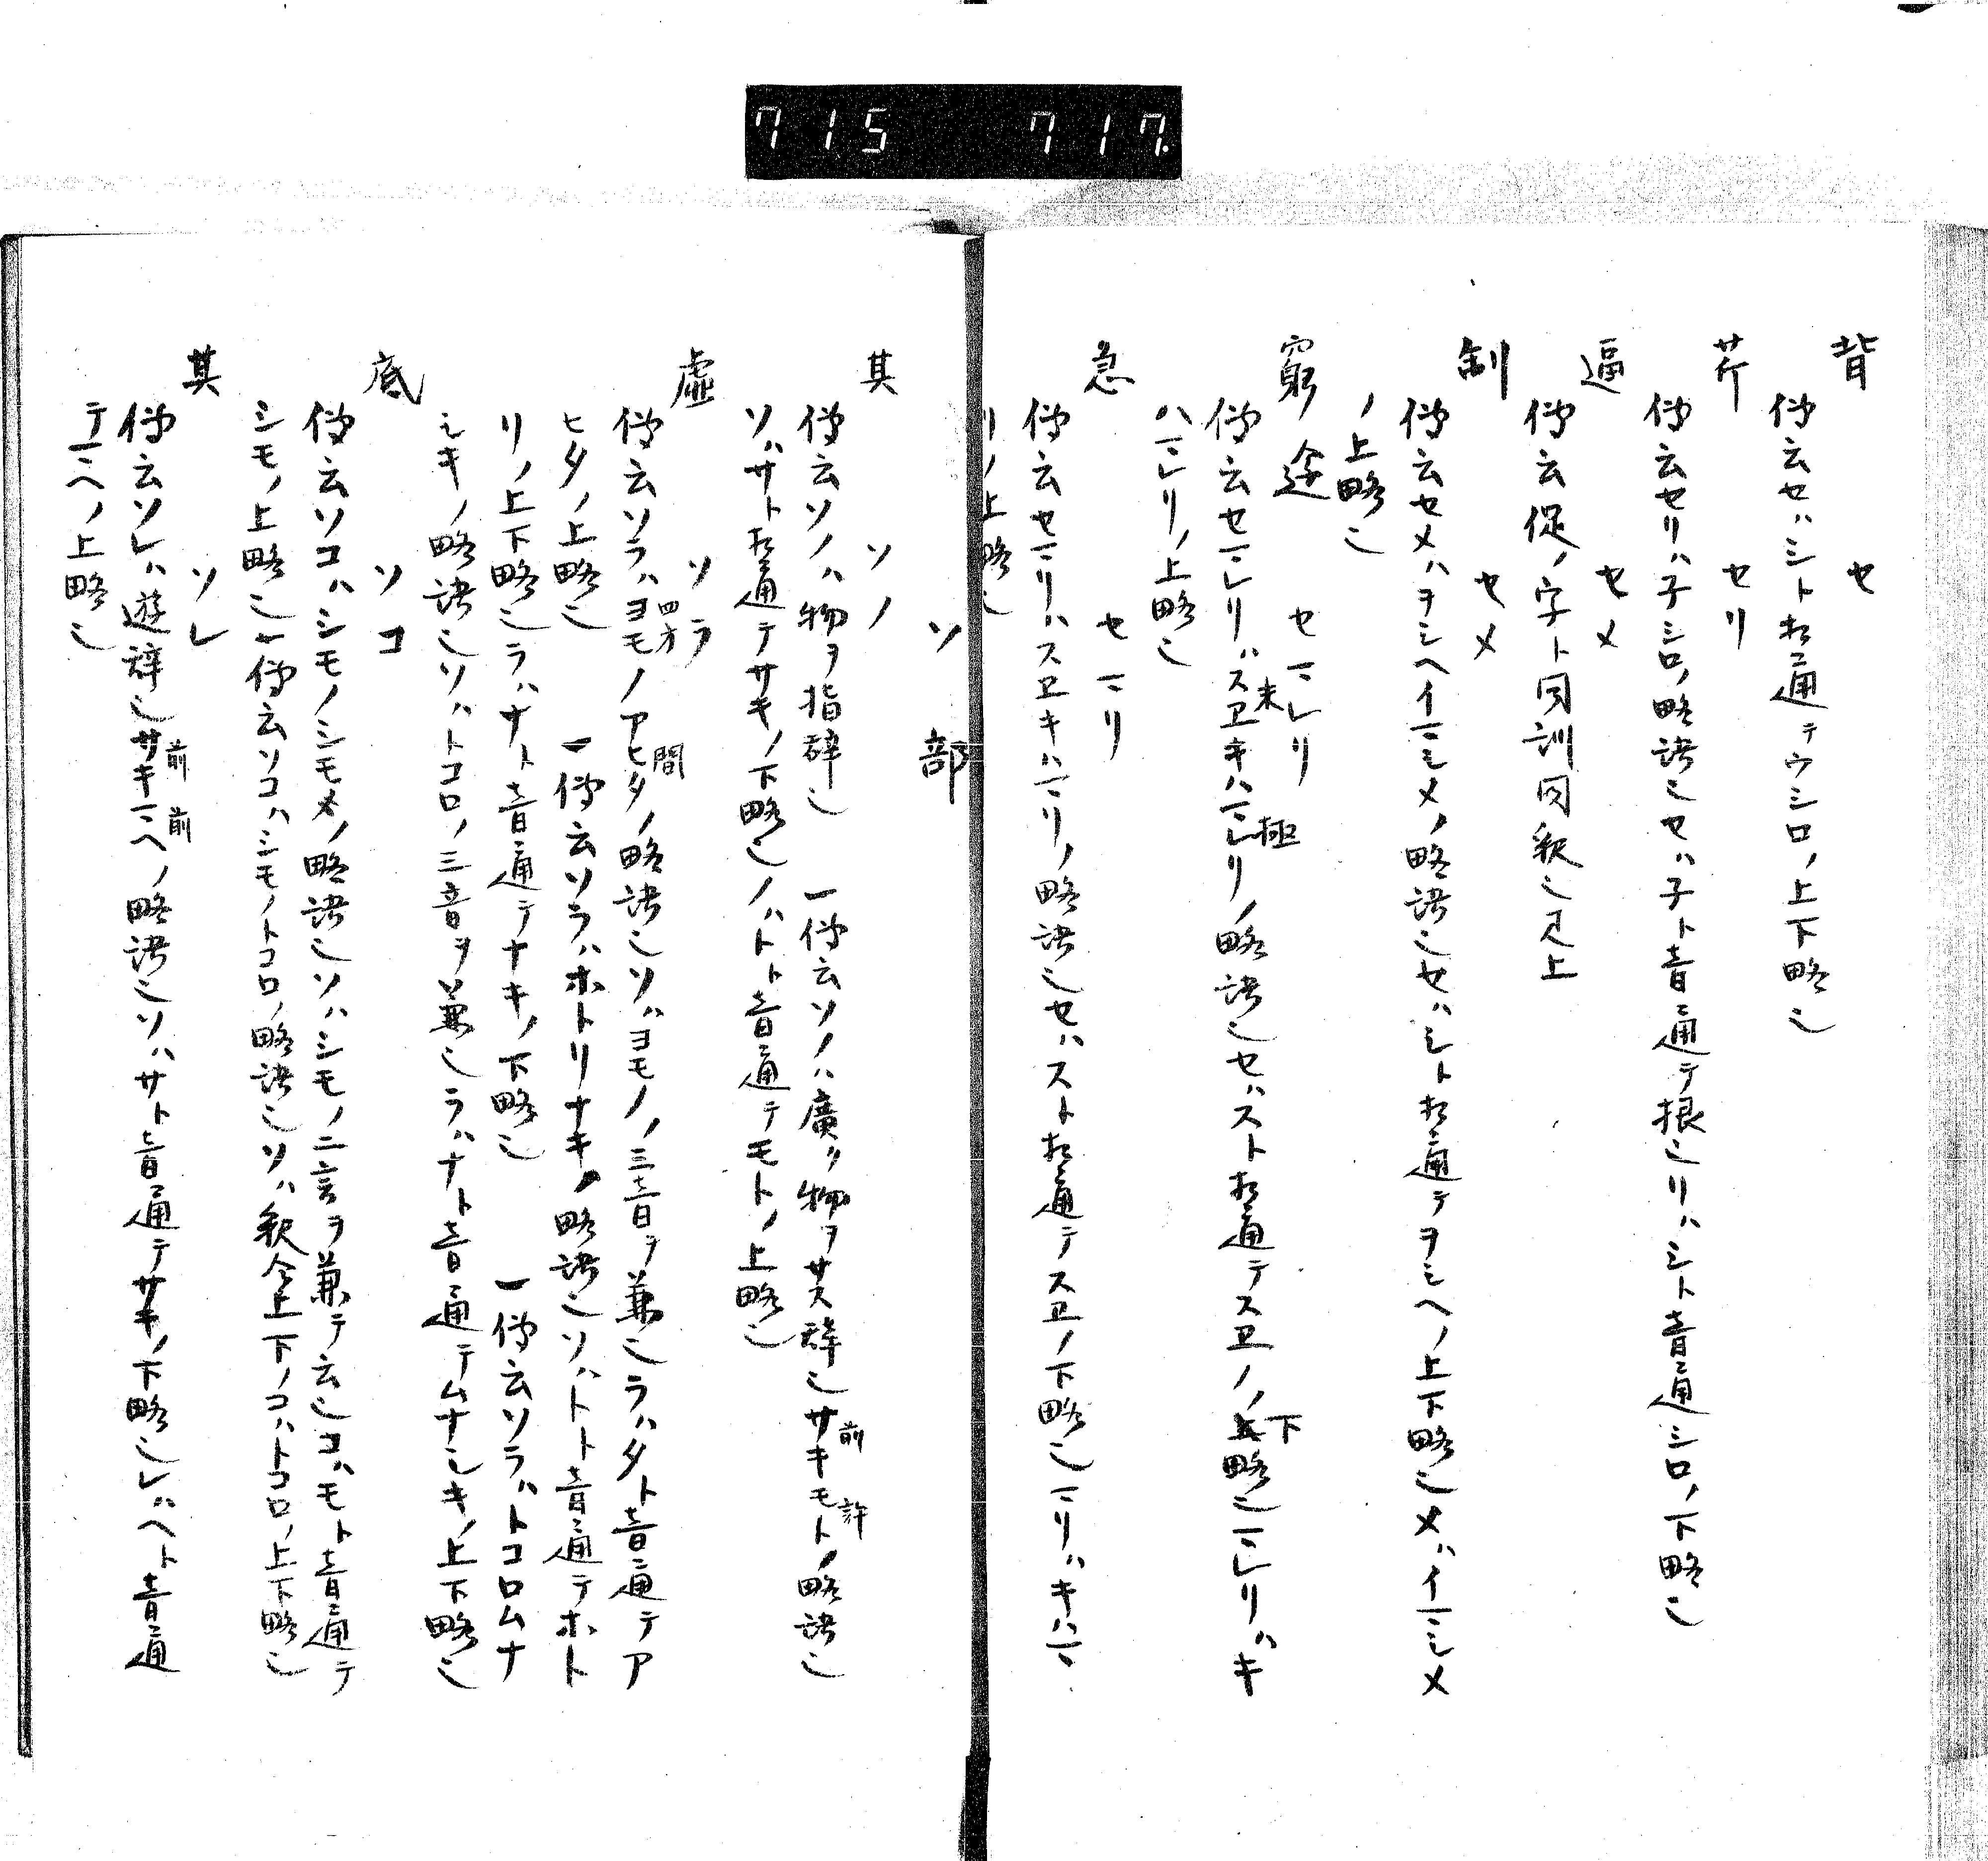 715 717.
背 セ
傳云セハシト相通テウシロノ上下略也
芹 セリ
傳云セリハ子シロノ略語也セハ子ト音通テ根也リハシト音通シロノ下略也
逼 セメ
傳云促ノ字ト同訓同釈也見上
制 セメ
傳云セメハヲシヘイマシメノ略語也セハシト相通テヲシヘノ上下略也メハイマシメ
ノ上略也
窮途 セマレリ
傳云セマレリハスヱ末キハマレリ極ノ略語也セハスト相通テスヱノノ下略也マレリハキ
ハマレリノ上略也
急 セマリ
傳云セマリハスヱキハマリノ略語也セハスト相通テスヱノ下略也マリハキハマ
リノ上略也
ソ 部
其 ソノ
傳云ソノハ物ヲ指辞也 一傳云ソノハ廣ク物ヲサス辞也サキ前モト許ノ略語也
ソハサト相通テサキノ下略也ノハトト音通テモトノ上略也
虚 ソラ
傳云ソラハヨモ四方ノアヒタ間ノ略語也ソハヨモノノ三音ヲ兼也ラハタト音通テア
ヒタノ上略也 一傳云ソラハホトリナキノ略語也ソハトト音通テホト
リノ上下略也ラハナト音通テナキノ下略也 一傳云ソラハトコロムナ
シキノ略語也ソハトコロノ三音ヲ兼也ラハナト音通テムナシキノ上下略也
底 ソコ
傳云ソコハシモノシモメノ略語也ソハシモノ二言ヲ兼テ云也コハモト音通テ
シモノ上略也一傳云ソコハシモノトコロノ略語也ソハ釈仝上下ノコハトコロノ上下略也
其 ソレ
傳云ソレハ遊辞也サキ前マヘ前ノ略語也ソハサト音通テサキノ下略也レハヘト音通
テマヘノ上略也